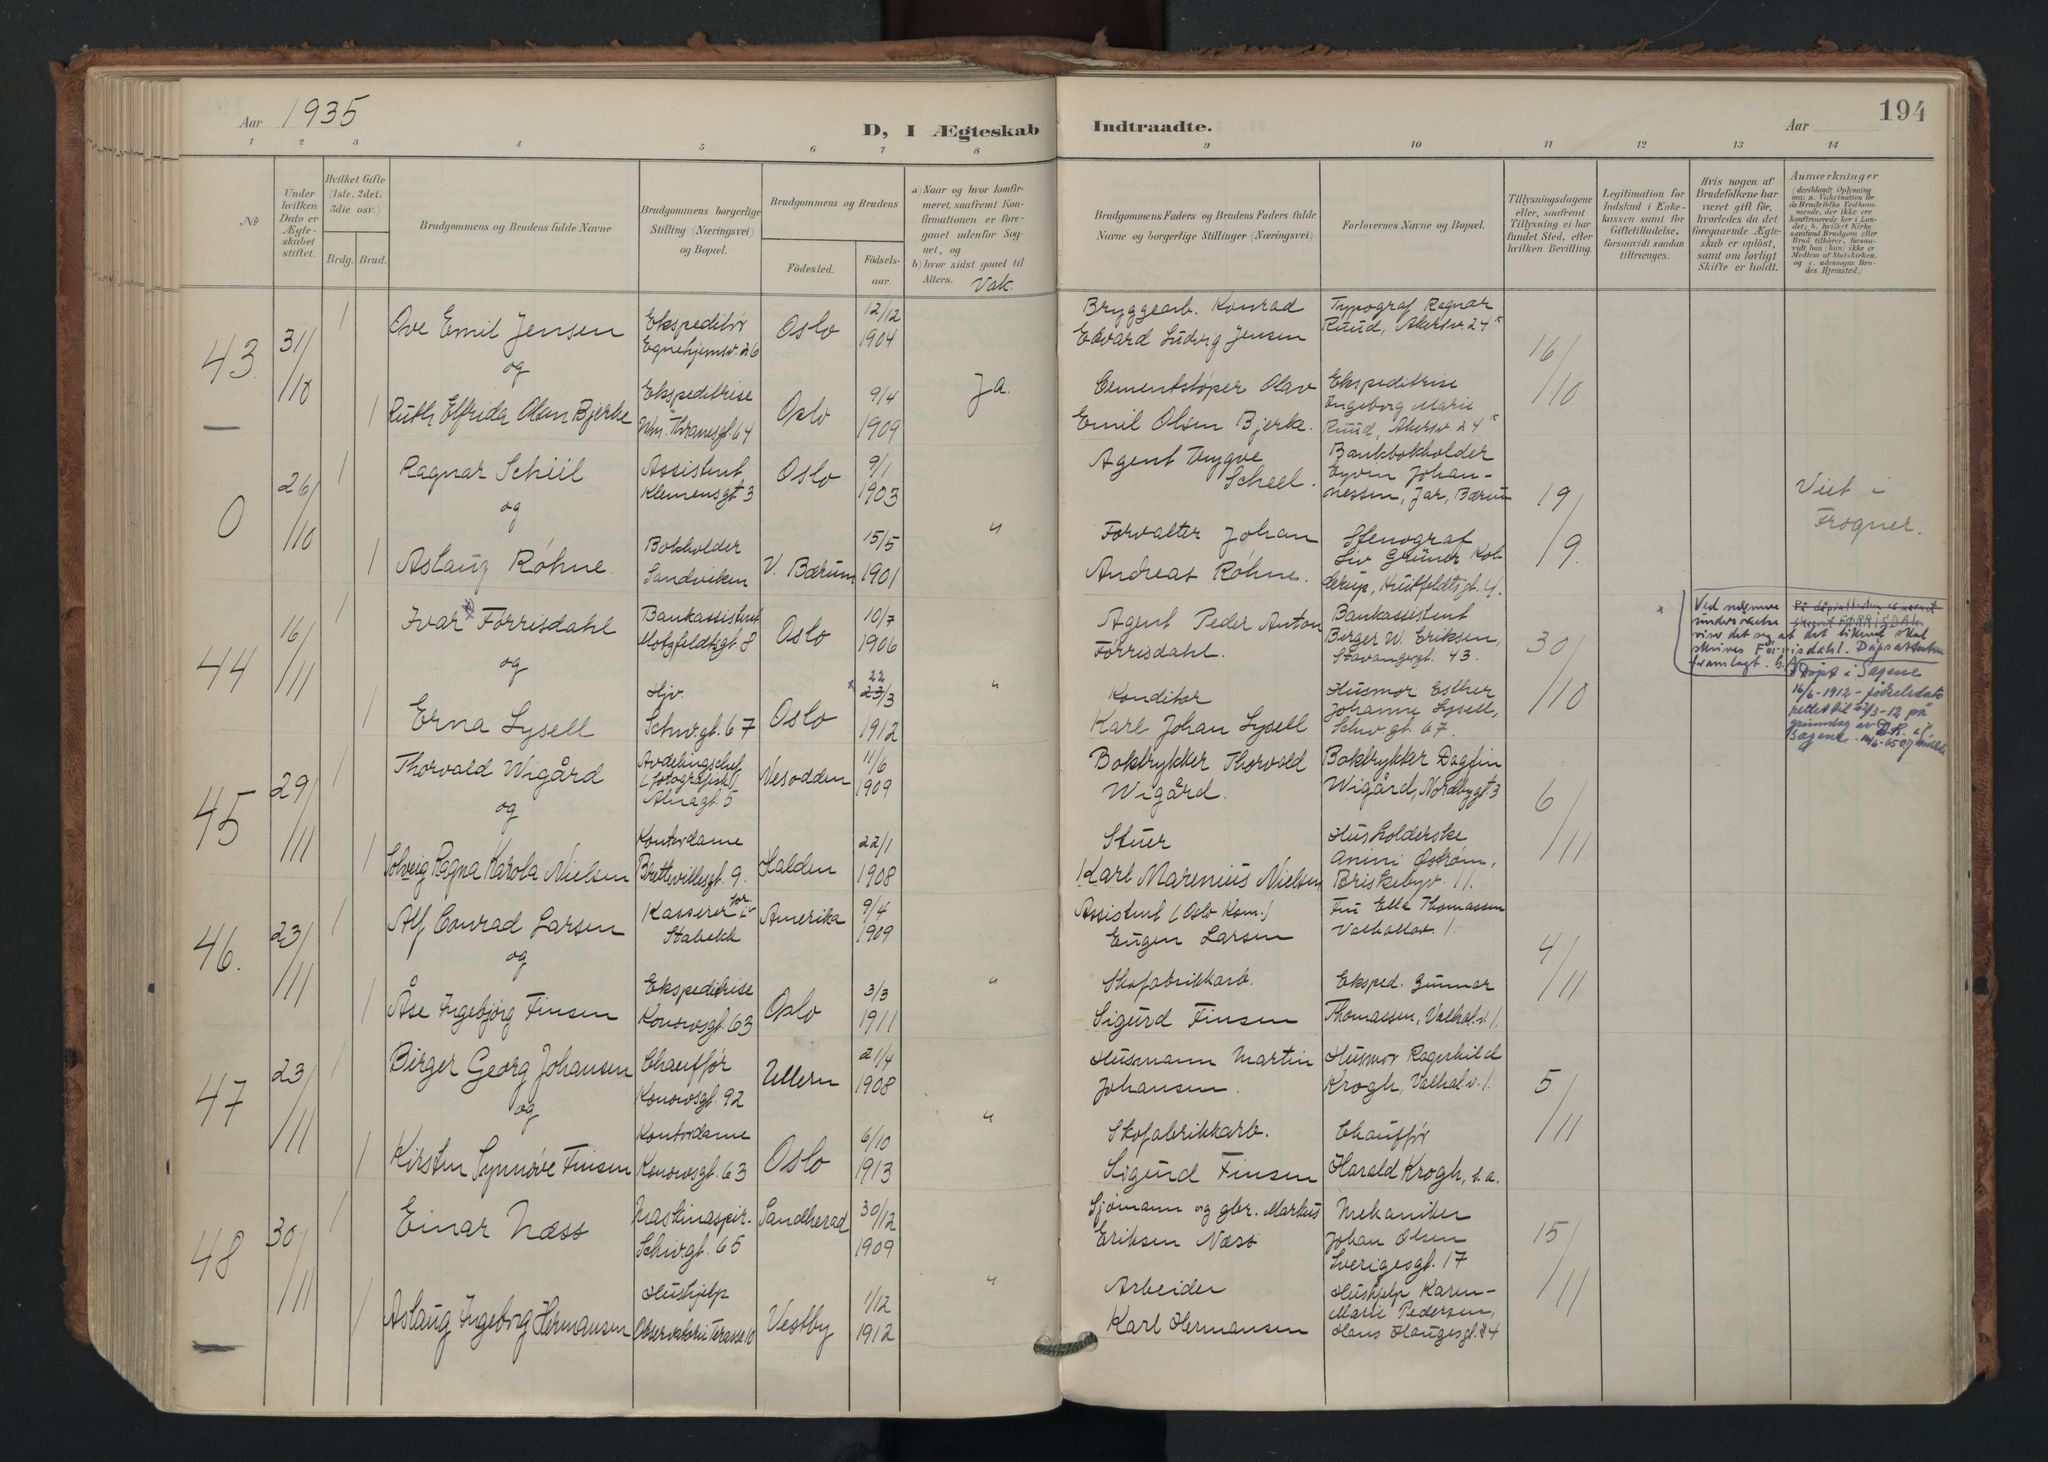 Aar 1935
D, I Ægteskab
Indtraadte.
Aar
194
1 2 3 4 5 6 7 8 9 10 11 12 13 14
№
Under hvilken Dato er Ægteskabet stiftet.
Hvilket Gifte (1ste, 2det, 3die osv.)
Brdg. Brud.
Brudgommens og Brudens fulde Navne
Brudgommens borgerlige Stilling (Næringsvei) og Bopæl.
Brudgommens og Brudens
Födested.
Födselsaar.
a) Naar og hvor konfirmeret, saafremt Konfirmationen er foregaaet udenfor Sognet, og
b) hvor sidst gaaet til Alters.
Vak.
Brudgommens Faders og Brudens Faders fulde Navne og borgerlige Stillinger (Næringsvei)
Forlovernes Navne og Bopæl.
Tillysningsdagene eller, saafremt Tillysning ei har fundet Sted, efter hvilken Bevilling.
Legitimation for Indskud i Enkekassen samt for Giftetilladelse, forsaavidt saadan tiltrænges.
Hvis nogen af Brudefolkene har været gift för, hvorledes da det foregaaende Ægteskab er oplöst, samt om lovligt Skifte er holdt.
Anmærkninger
43. 31/10
1 Ove Emil Jensen
Ekspeditör
Egnehjemsv. 26
Oslo
12/12 1904
Bryggearb. Konrad
Edvard Ludvig Jensen
Typograf Ragnar
Ruud, Akersv. 24
16/10
og
1 Ruth Elfrida Olsen Bjerke
Ekspeditrise
Wm. Thranesgt. 64
Oslo
9/4 1909
Ja.
Cementstöper Olav
Emil Olsen Bjerke.
Ekspeditrise
Ingeborg Marie
Ruud, Akersv. 24
0 26/10
1 Ragnar Scheel
Assistent
Klemensgt. 3
Oslo
9/1 1903
Agent Trygve
Scheel.
Bankbokholder
Eyvin Johan-
nessen, Jar, Bærum
19/9.
Viet i
Frogner.
og
1 Aslaug Röhne.
Bokholder
Sandviken
V. Bærum
15/5 1901
"
Forvalter Johan
Andreas Röhne.
Stenograf
Siv Grüner Kol-
derup, Huitfeldtsgt. 4.
44 16/11
1 Ivar Förrisdahl
Bankassistent
Motzfeldtsgt 8
Oslo
10/7 1906
Agent Peder Anton
Förrisdahl.
Bankassistent
Berger W. Eriksen,
Stavangergt. 43.
30/10
Ved nærmere
undersökelse
viser det sig at det likevel skal
skrives Förrisdahl. Dåpsattesten
framlagt.
og
1 Erna Lysell
Hjv.
Schw.gt. 67
Oslo
22
23/3 1912
"
Konditor
Karl Johan Lysell
Husmor Esther
Johanne Lysell,
Schw.gt. 67.
Döpt i Sagene
16/6-1912 - födselsdato
rettet til 22/3-12 på
grunnlag av D.R. i
Sagene
45 29/11
1 Thorvald Wigård
Avdelingschef
(fotografisk)
Almagt. 5
Nesodden
11/6 1909
Boktrykker Thorvald
Wigård.
Boktrykker Dagfin
Wigård, Nordbygt. 3
6/11
og
1 Solveig Ragna Karola Nielsen
Kontordame
Brettevillesgt. 9.
Halden
22/1 1908
Stuer
Karl Marenius Nielsen
Husholderske
Anni Öström,
Briskebyv. 11.
46. 23/11
1 Alf Conrad Larsen
Kasserer
Stabekk
Amerika
9/4 1909
Assistent (Oslo Kom.)
Eugen Larsen
Fru Ella Thomassen
Valhallav. 1.
4/11
og
1 Åse Ingebjörg Finsen
Ekspeditrise
Konowsgt. 63
Oslo
3/3 1911
"
Skofabrikkarb.
Sigurd Finsen
Eksped. Gunnar
Thomassen, Valhal.v. 1.
47 23/11
1 Birger Georg Johansen
Chauffør
Konowsgt. 92
Ullern
21/4 1908
Husmann Martin
Johansen.
Husmor Ragnhild
Krogh, Valhal.v. 1.
5/11
og
1 Kirsten Synnöve Finsen
Kontordame
Konowsgt. 63
Oslo
6/10 1913
"
Skofabrikkarb.
Sigurd Finsen
Chauffør
Harald Krogh, s.a.
48 30/11
1 Einar Næss
Maskinaspir.
Schw.gt. 65
Sandherad
30/12 1909
Sjömann og gbr. Markus
Eriksen Næss
Mekaniker
Johan Olsen
Sverigesgt. 17
15/11
1 Aslaug Ingeborg Hermansen
Hushjelp
Observatorie Terasse 10
Vestby
1/12 1912
"
Arbeider
Karl Hermansen
Hushjelp Karen-
Marie Pedersen,
Hans Haugesgt. 24